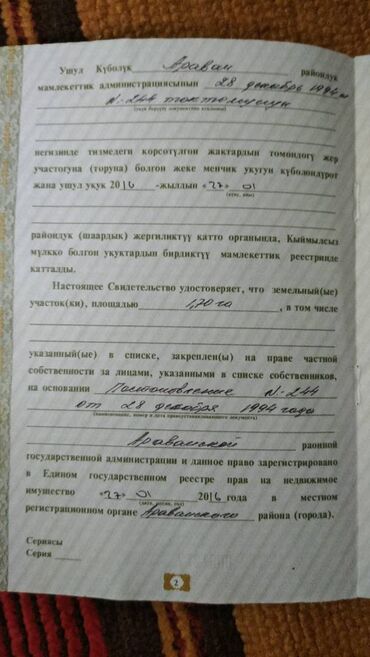 Ушул Күбөлүк Араван райондук
мамлекеттик администрациясынын 28 декабрь 1994 ж
N-244 токтомунун
негизинде тизмедеги көрсөтүлгөн жактардын төмөндөгү жер
участогуна (торуна) болгон жеке менчик укугун күбөлөндүрөт
жана ушул укук 2016 -жылдын «27» 01
(күнү, айы)
райондук (шаардык) жергиликтүү катто органында, Кыймылсыз
мүлккө болгон укуктардын бирдиктүү мамлекеттик реестринде
катталды.
Настоящее Свидетельство удостоверяет, что земельный(ые)
участок(ки), площадью 1,70 га , в том числе
указанный(ые) в списке, закреплен(ы) на праве частной
собственности за лицами, указанными в списке собственников,
на основании Постановление N-244
от 28 декабря 1994 года
(наименование, номер и дата правоустанавливающего документа)
Араванской районной
государственной администрации и данное право зарегистрировано
в Едином государственном реестре прав на недвижимое
имущество «27» 01 2016 года в местном
регистрационном органе Араванского района (города).
Сериясы
Серия
2